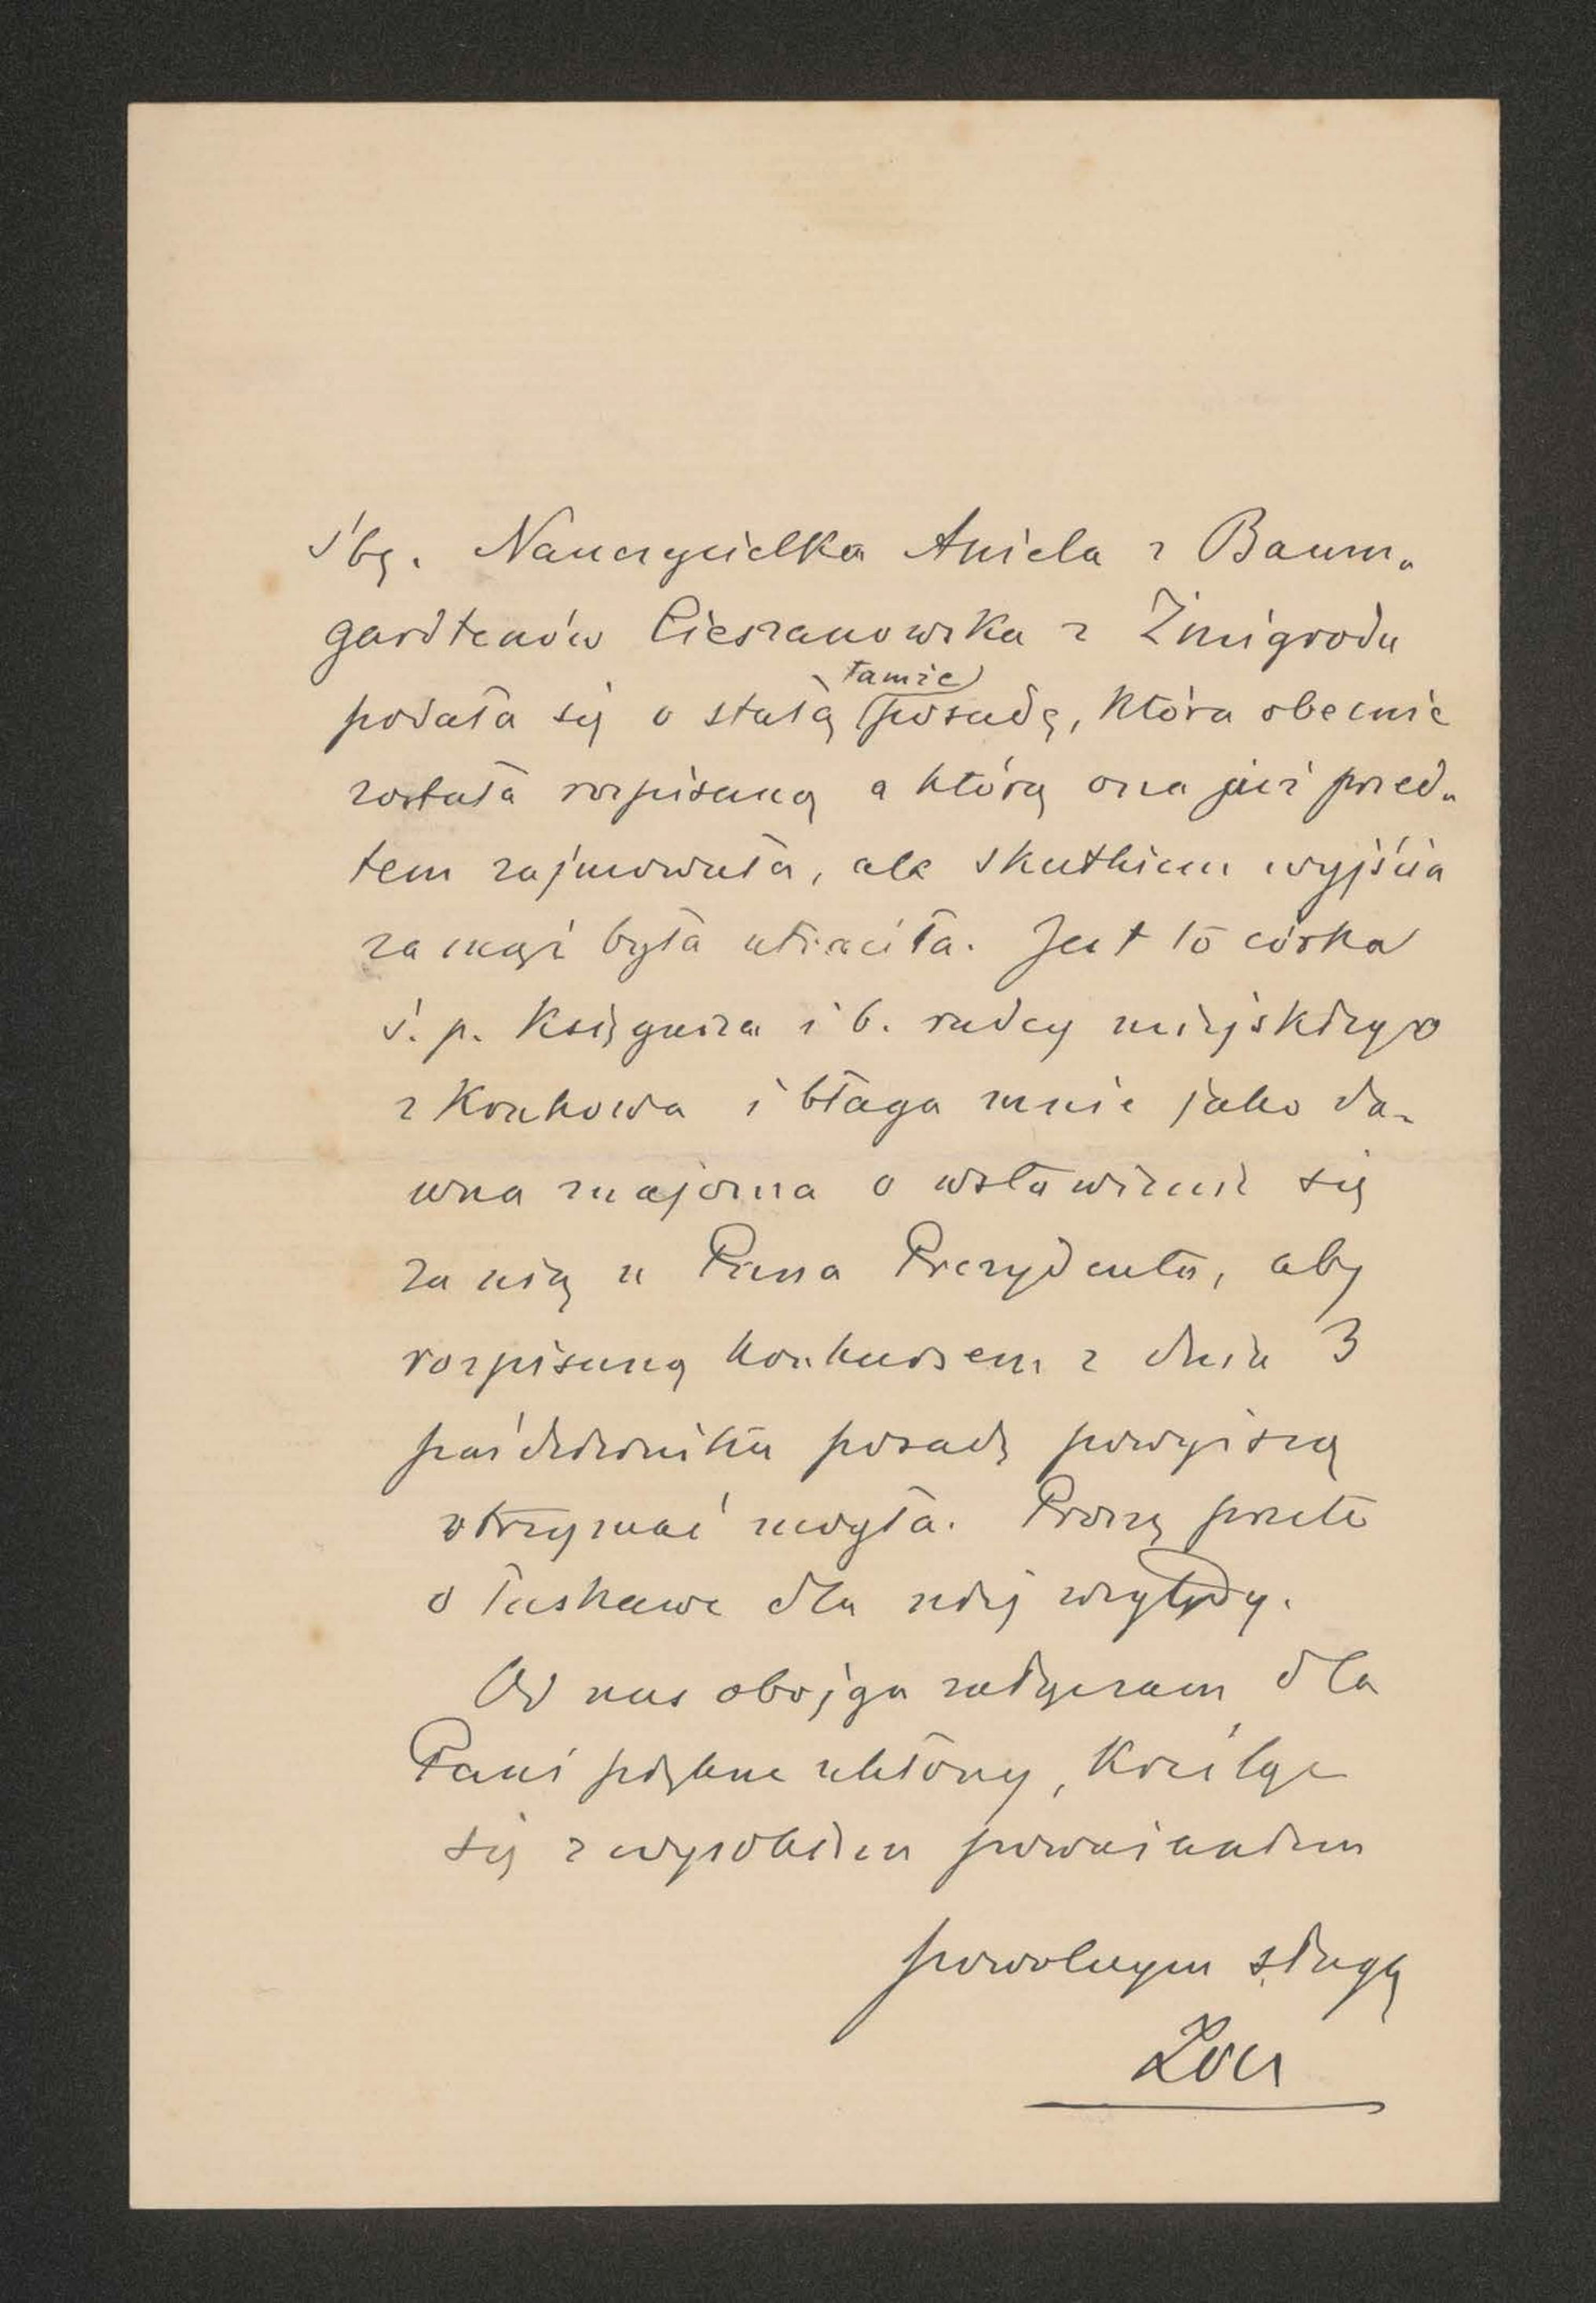 śbę. Nauczycielka Aniela z Baum-
gardtenów Cieszanowska z Żmigrodu
podała się o stałą tamże posadę, która obecnie
została rozpisaną a którą ona już przed-
tem zajmowała, ale skutkiem wyjścia
za mąż była utraciła. Jest to córka
ś. p. Księgarza i b. radcy miejskiego
z Krakowa i błaga mnie jako da-
wna znajoma o wstawienie się
za nią u Pana Prezydenta, aby
rozpisaną konkursem z dnia 3
października posadę powyższą
otrzymać mogła. Proszę przeto
o łaskawe dla niej względy.
Od nas obojga załączam dla
Pani piękne ukłony, Kreśląc
się z wysokiem poważaniem
powolnym sługą
Zoll